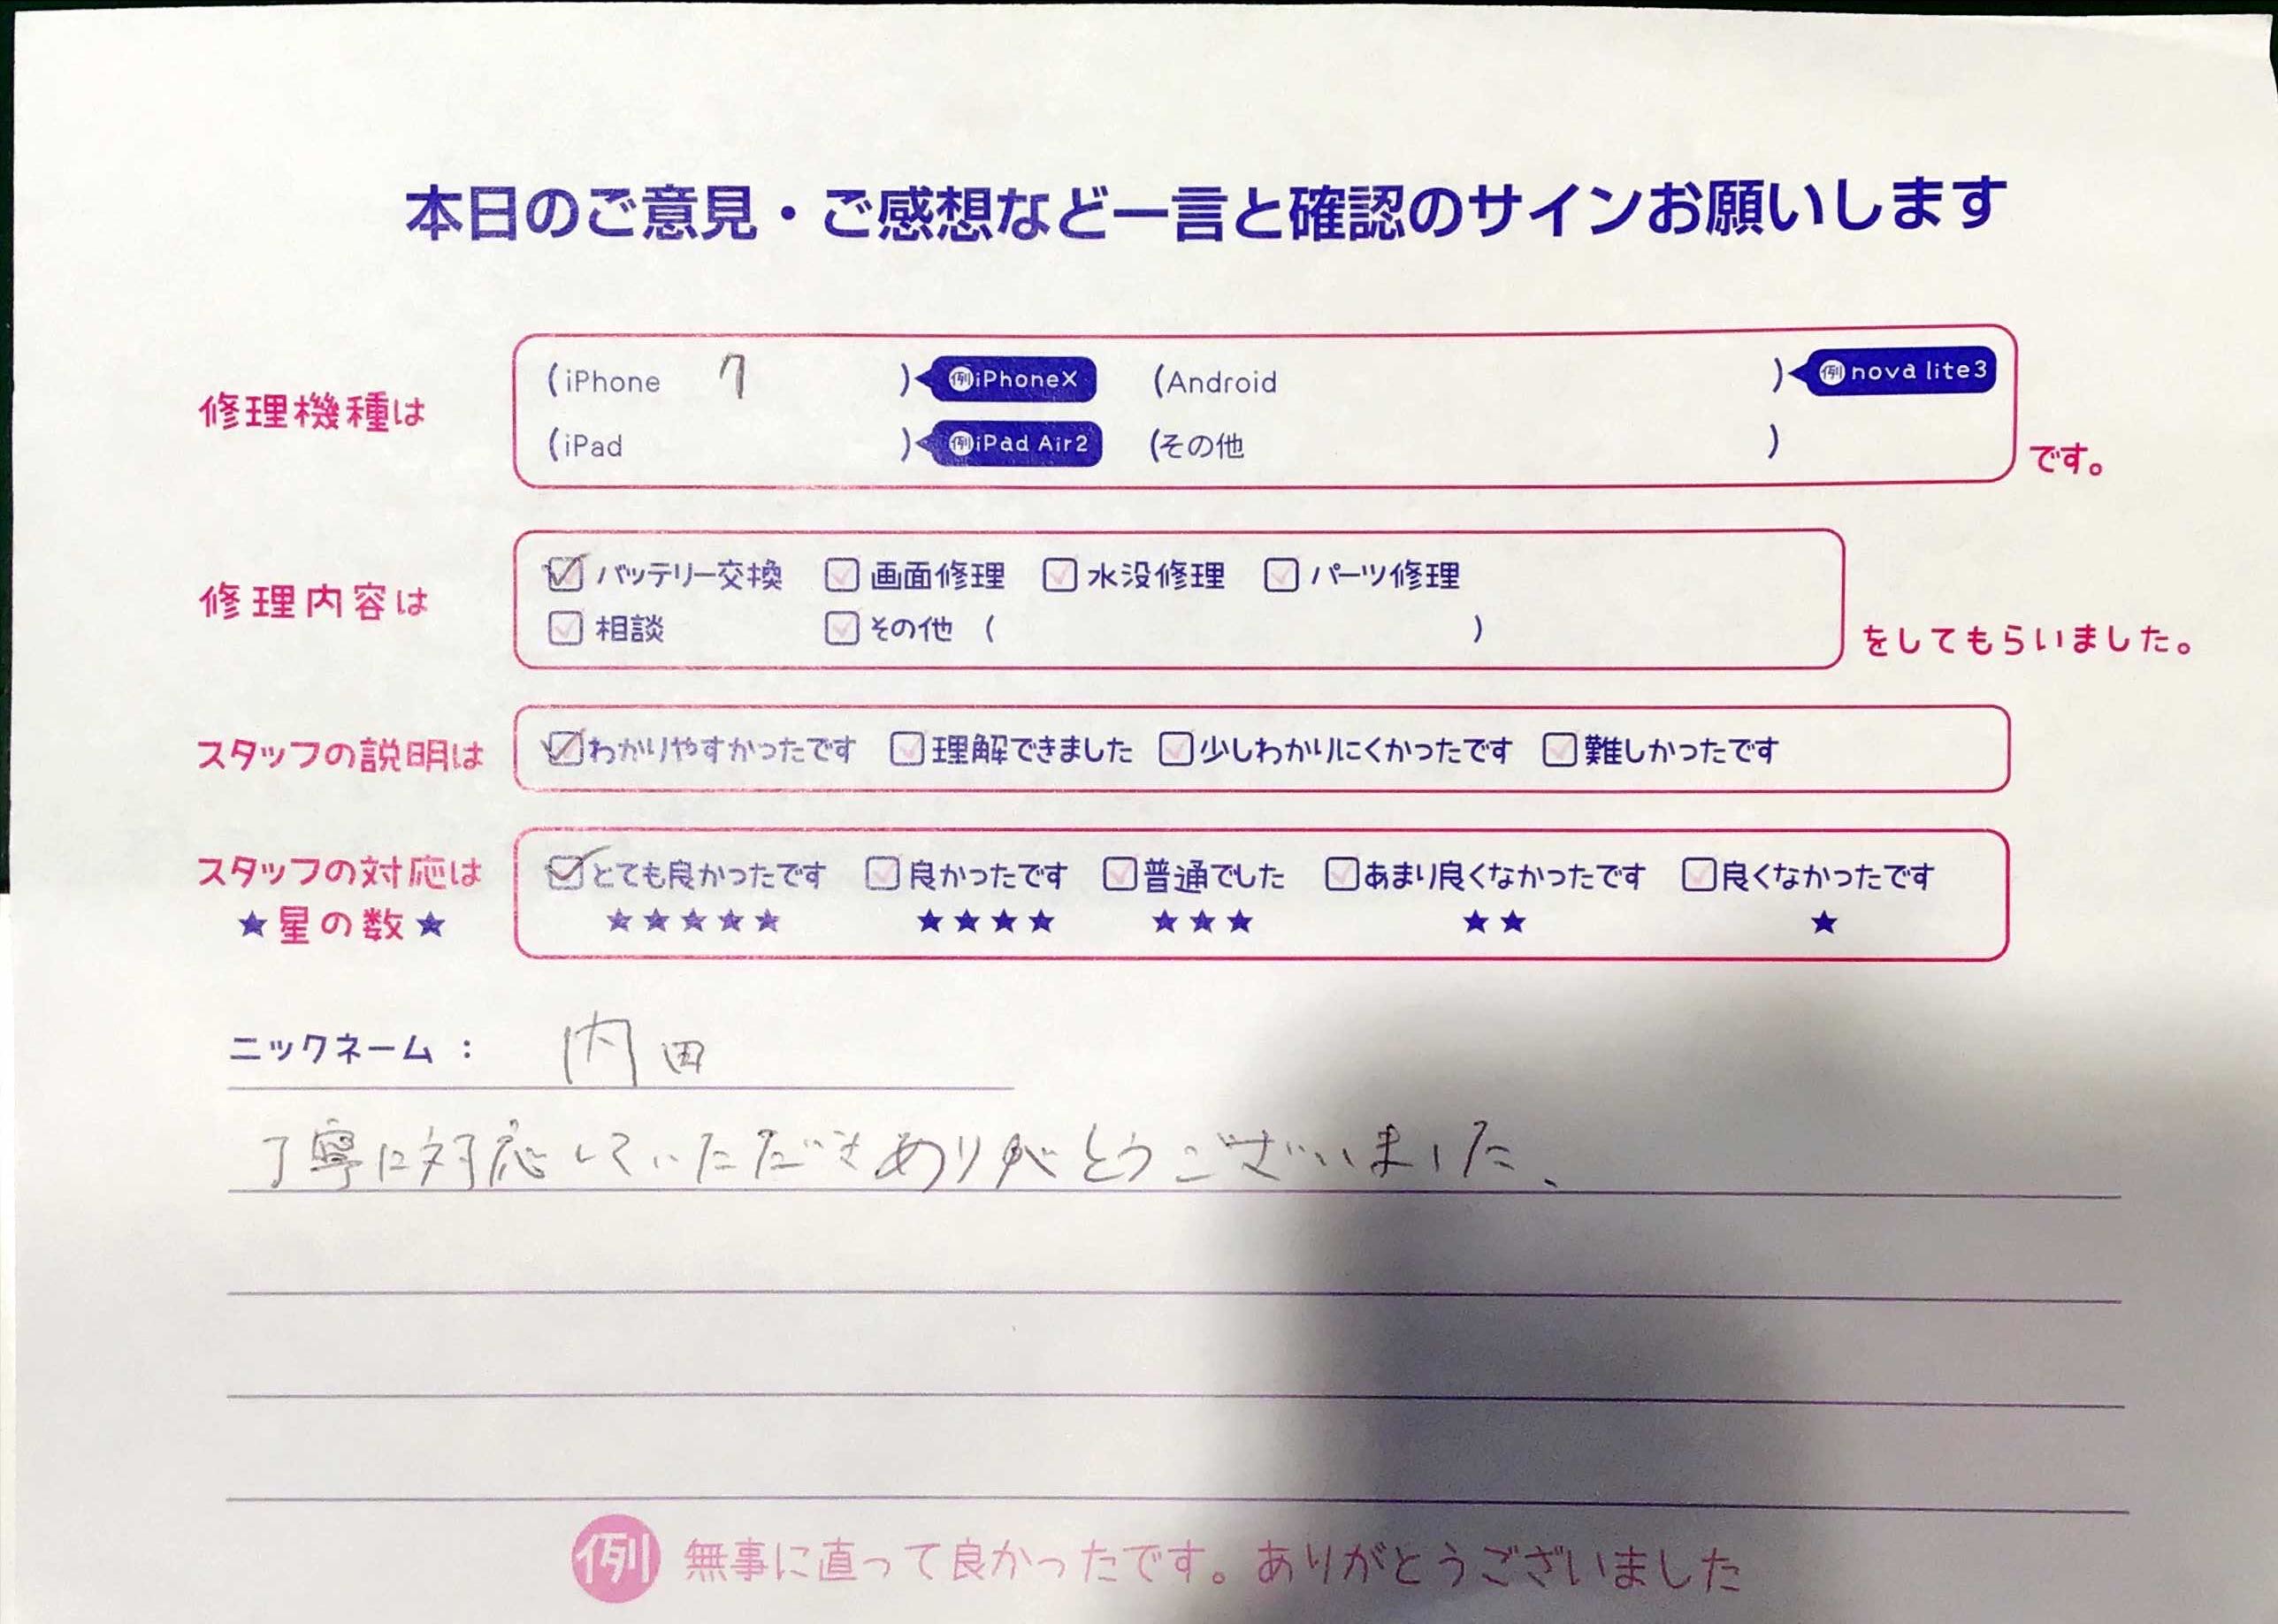 本日のご意見・ご感想など一言と確認のサインお願いします
修理機種は
(iPhone 7 ) 例iPhoneX (Android ) 例nova lite3
(iPad ) 例iPad Air2 (その他 ) です。
修理内容は
バッテリー交換 画面修理 水没修理 パーツ修理
相談 その他 ( ) をしてもらいました。
スタッフの説明は わかりやすかったです 理解できました 少しわかりにくかったです 難しかったです
スタッフの対応は とても良かったです 良かったです 普通でした あまり良くなかったです 良くなかったです
★星の数★ ★★★★★ ★★★★ ★★★ ★★ ★
ニックネーム： 内田
丁寧に対応していただきありがとうございました、
例 無事に直って良かったです。ありがとうございました